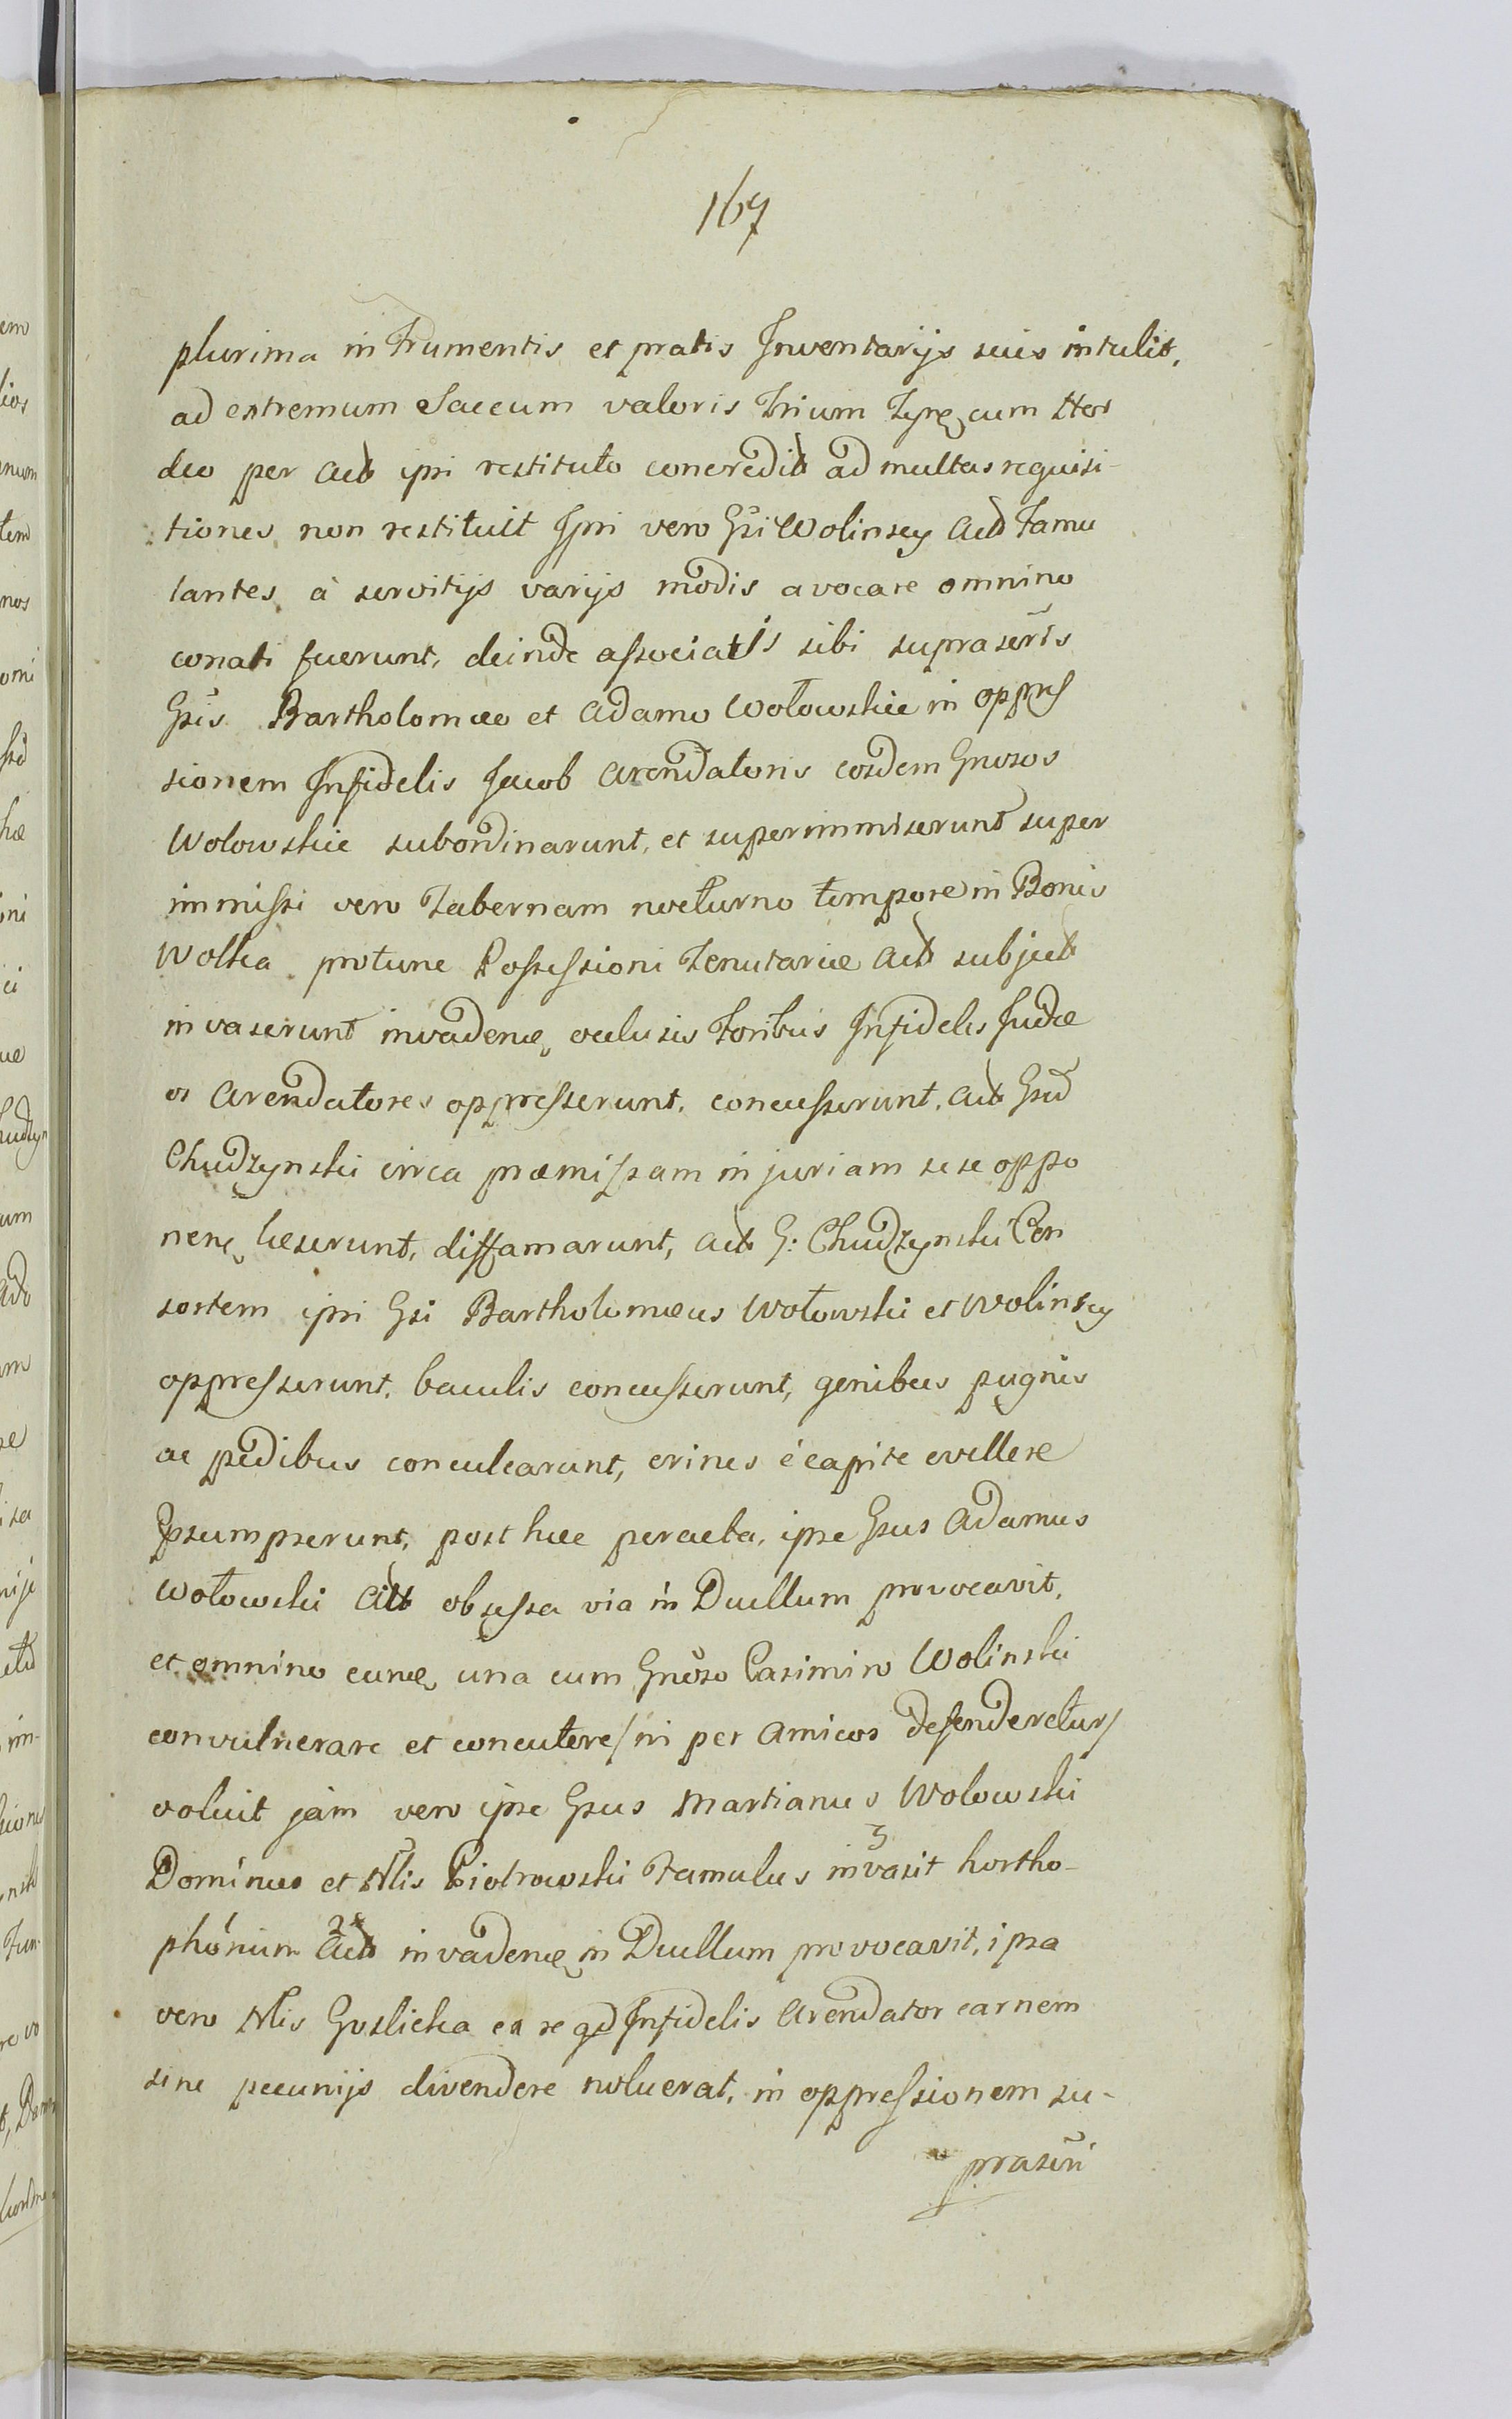 167
plurima in Frumentis et pratis Inventarijs suis intulit,
ad extremum Saccum valoris Trium Tynf cum Hor
deo per Act ipsi restituto concredit ad multas requisi-
tiones non restituit Ipsi vero Gsi Wolinscy Act Famu
lantes à servitijs varijs modis avocare omnino
conati fuerunt, deinde associatis sibi suprascris
Gsis Bartholomæo et Adamo Wołowskie in oppres
sionem Infidelis Jacob Arendatoris eosdem Gnosos
Wolowskie subordinarunt, et superimmiserunt super
immissi vero Tabernam nocturno tempore in Bonis
Wolka protunc Possessioni Tenutariæ Act subject
invaserunt invadenq occlusis Foribus Infideles Judæ
os Arendatores oppresserunt, concusserunt, Act Gsd
Chudzynski circa præmissam injuriam sese oppo
nenq læserunt, diffamarunt, Act G: Chudzynski Con
sortem ipsi Gsi Bartholomæus Wołowski et Wolinscy
oppresserunt, baculis concusserunt, genibus pugnis
ac pedibus conculcarunt, crines è capite evellere
Psumpserunt, post hæc peracta, ipse Gsus Adamus
Wołowski Act obsessa via in Duellum provocavit,
et omnino eunq una cum Gnoso Casimiro Wolinski
convulnerare et concutere / ni per Amicos defenderetur /
voluit jàm vero ipse Gsus Martianus Wolowski
Dominus et Nlis Piotrowski Famulus invasit hortho-
phónium Act invadenq in Duellum provocavit, ipsa
vero Nlis Goslicka ea re qd Infidelis Arendator carnem
sine pecunijs divendere noluerat, in oppressionem su-
prascri